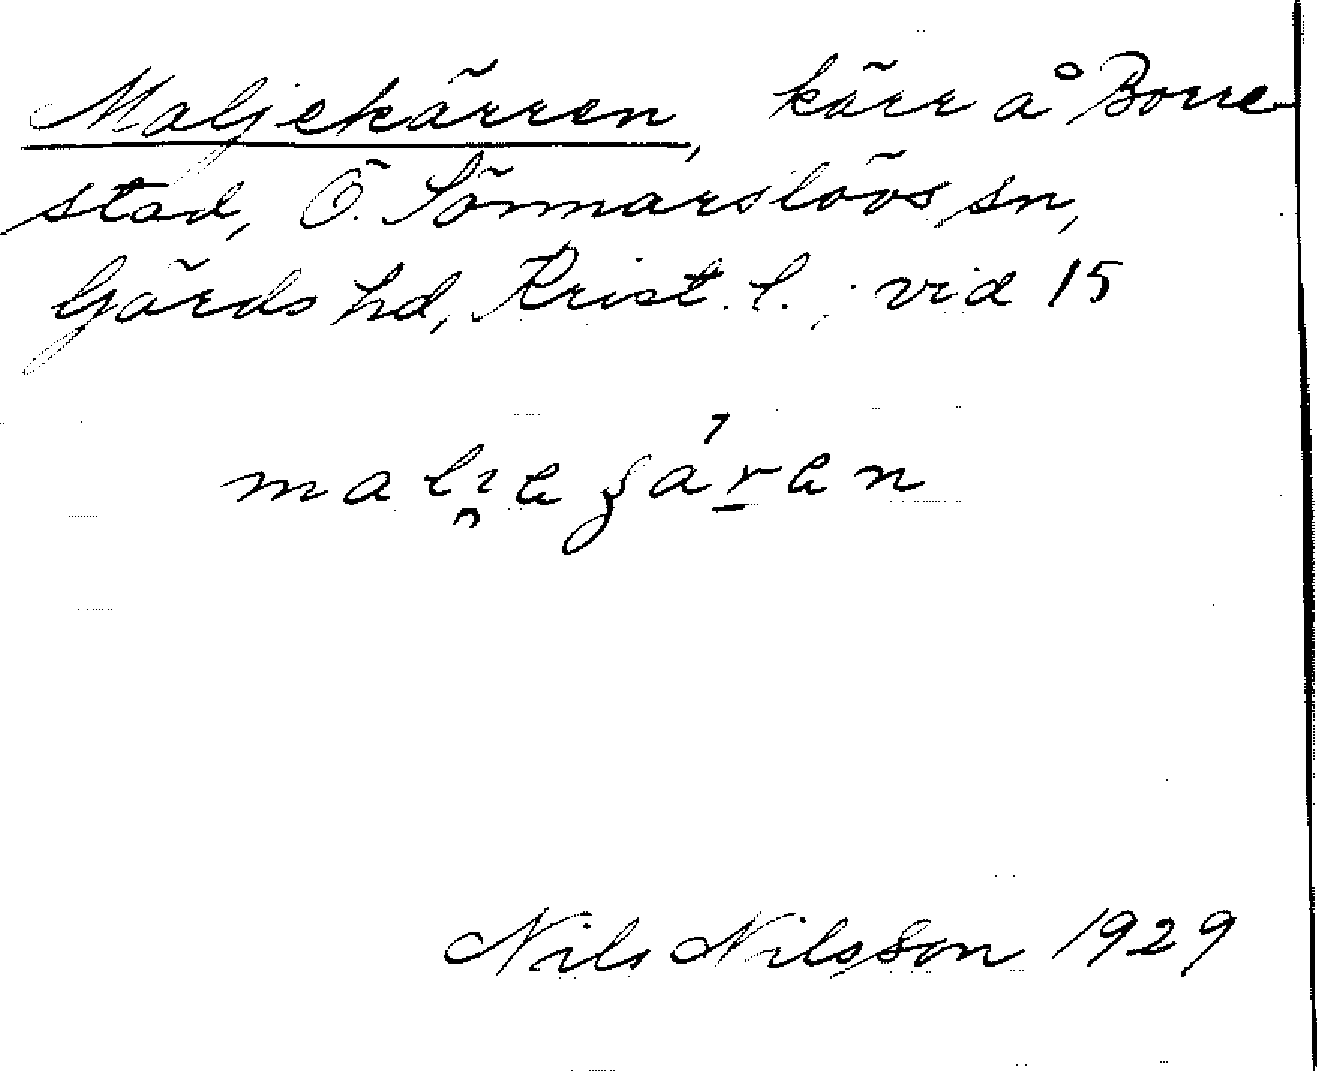 Maljekärren, kärr å Borre
stad, Ö. Sönnarslövs sn,
Gärds hd, Krist. l.; vid 15
Nils Nilsson 1929